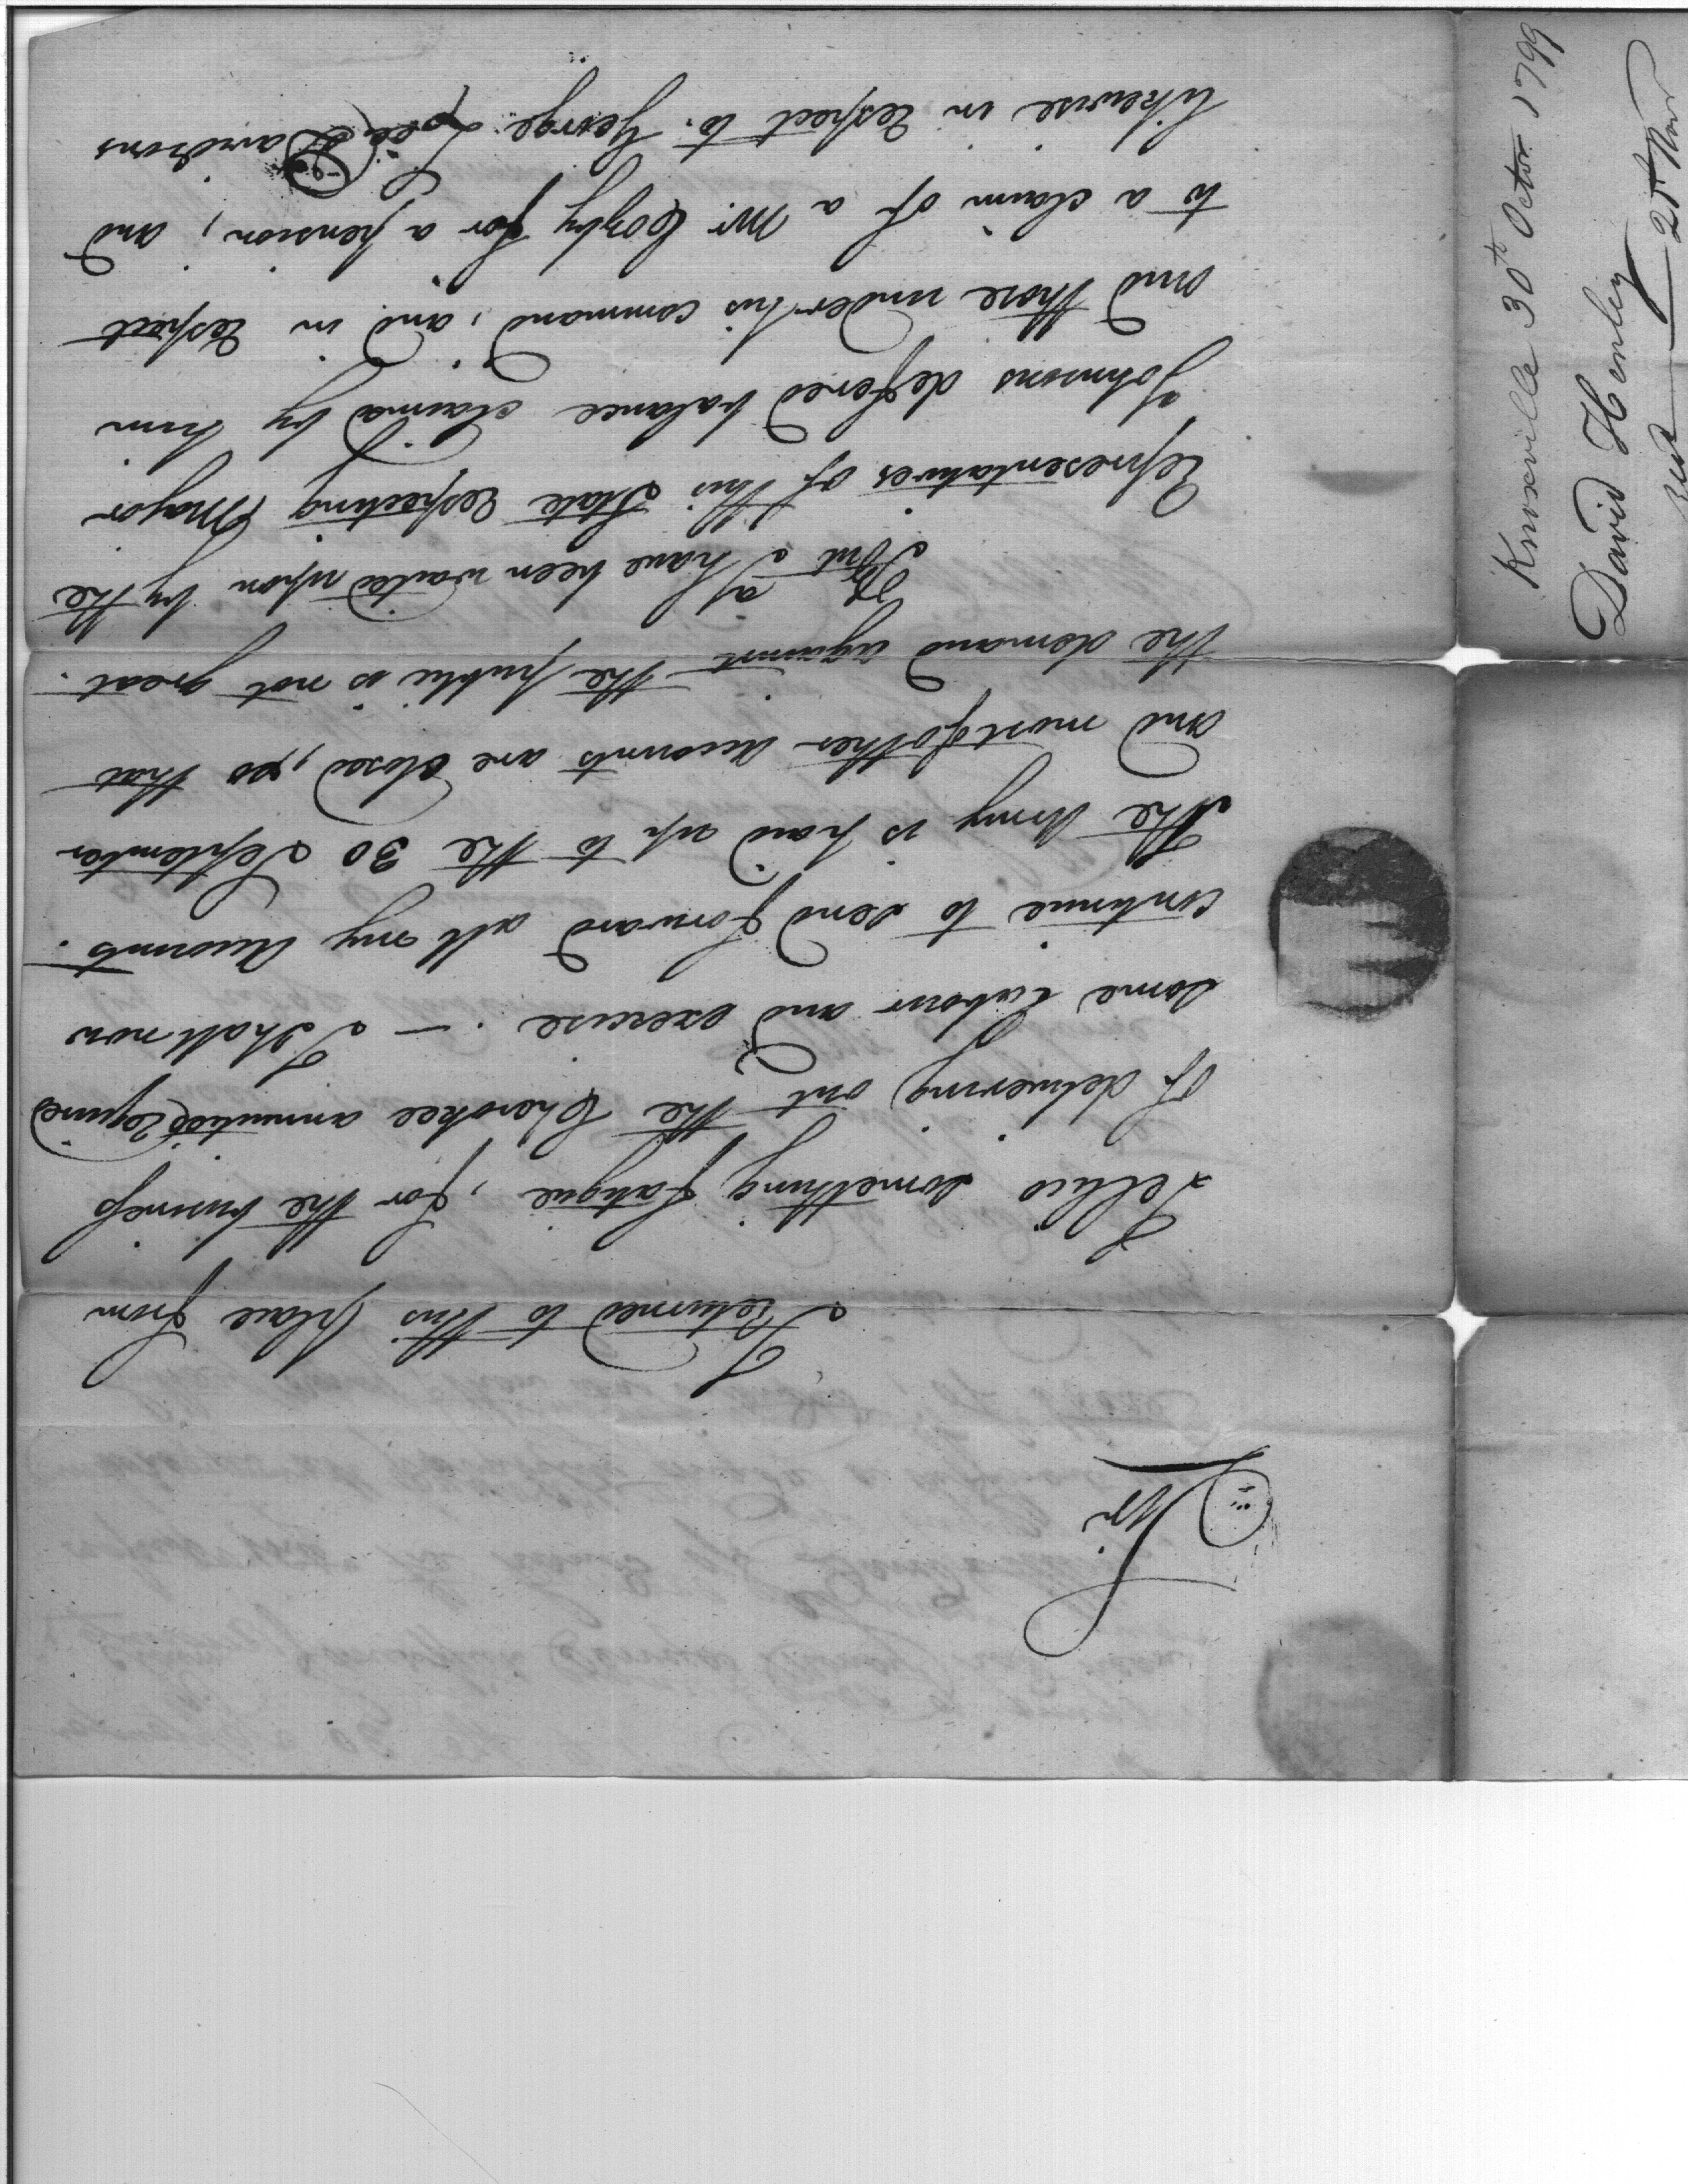 Sir
I Returned to this place from
Tellico something fatigue, for the business
of delivering out the Cherokee annuities Requires
some labour and exercise. — I shall now
continue to send forward all my Accounts.
The Army is paid up to the 30 September
and most of other Accounts are closed, so that
the demand against the public is not great.
I have been waited upon by the
Representatives of this State Respecting Major
Johnsons deffered balance claimed by him
and those under his command, and in Respect
to a claim of a Mr. Cozby for a pension, and
likewise in Respect to George Davidsons
Knoxville 30th Octor 1799
David Henley
Recd 25 Nov